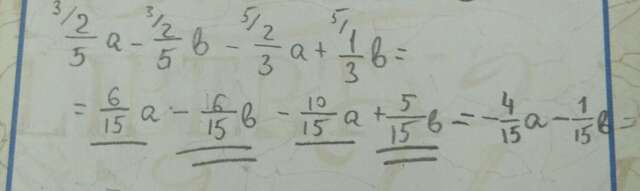 3/ 2/5 a - 3/ 2/5 b - 5/ 2/3 a + 5/ 1/3 b =
= 6/15 a - 6/15 b - 10/15 a + 5/15 b = - 4/15 a - 1/15 b =